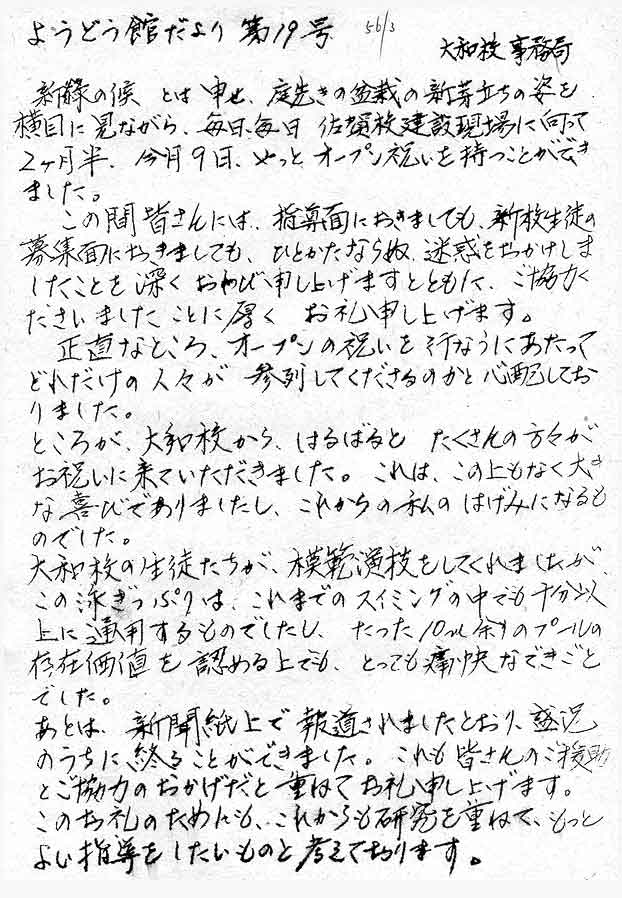 ようどう館だより 第19号 56/3
大和校 事務局
新緑の候 とは申せ、庭先きの盆栽の新芽立ちの姿を
横目に見ながら、毎日毎日 佐賀校建設現場に向って
2ヶ月半、今月9日、やっと オープン祝いを持つことができ
ました。
この間皆さんには、指導面におきましても、新校生徒の
募集面におきましても、ひとかたならぬ 迷惑をおかけしま
したことを 深く おわび申し上げますとともに、ご協力く
ださいましたことに厚く お礼申し上げます。
正直なところ、オープンの祝いを 行なうにあたって
どれだけの人々が 参列してくださるのかと心配してお
りました。
ところが、大和校から、はるばると たくさんの方々が
お祝いに来ていただきました。これは、この上もなく大き
な喜びでありましたし、これからの私の はげみになるも
のでした。
大和校の生徒たちが、模範演技をしてくれましたが、
この泳ぎっぷりは、これまでのスイミングの中でも、十分以
上に通用するものでしたし、たった10m余りのプールの
存在価値を 認める上でも、とっても痛快なできごと
でした。
あとは、新聞紙上で 報道されましたとおり、盛況
のうちに、終ることができました。これも皆さんのご援助
とご協力のおかげだと 重ねてお礼申し上げます。
このお礼のためにも、これからも研究を重ねて、もっと
よい指導をしたいものと 考えております。